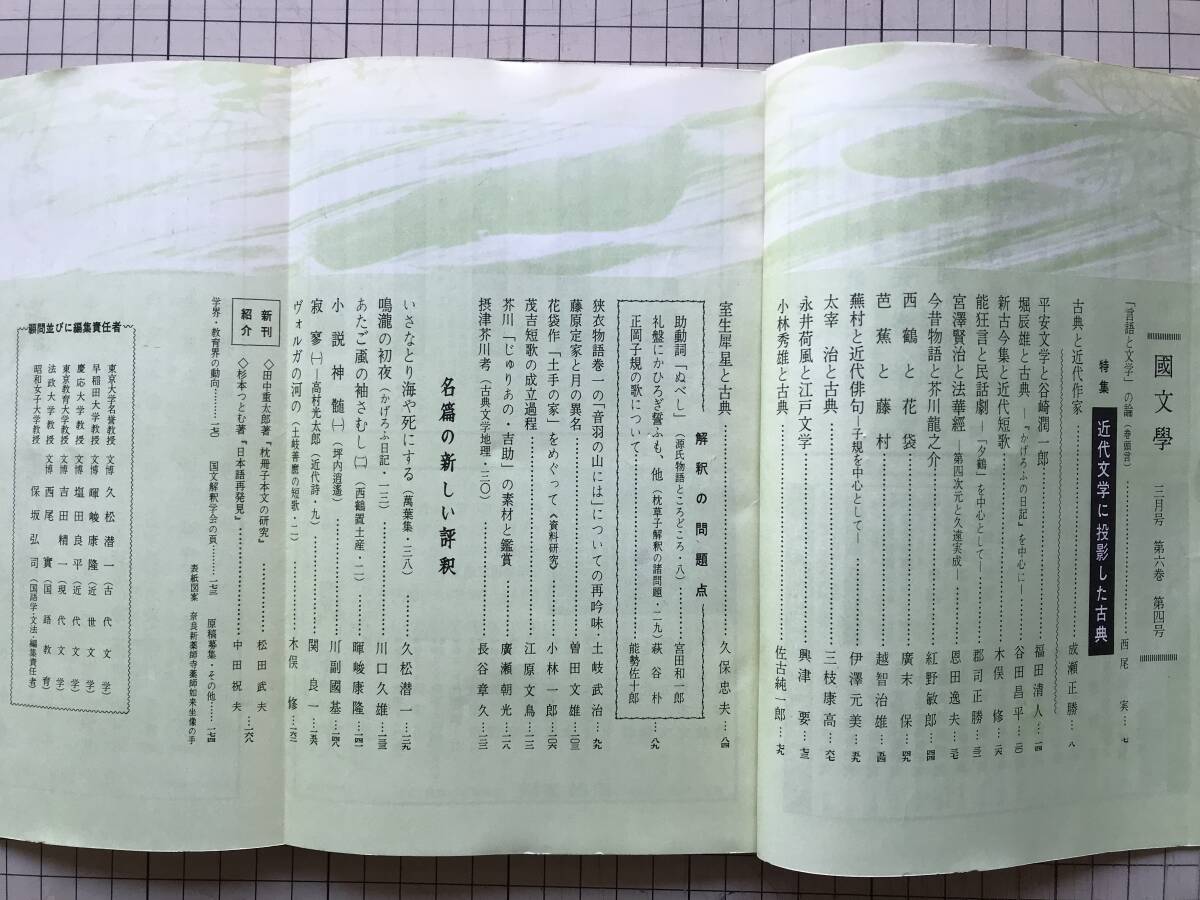 國文學 三月号 第六巻 第四号
特集 近代文学に投影した古典
「言語と文学」の論(巻頭言)……西尾 実…七
古典と近代作家……成瀬正勝…八
平安文学と谷崎潤一郎……福田清人…一四
堀辰雄と古典 ―『かげろふの日記』を中心に―……谷田昌平…二〇
新古今集と近代短歌……木俣 修…二六
能狂言と民話劇 ―「夕鶴」を中心として―……郡司正勝…三二
宮澤賢治と法華經 ―第四次元と久遠実成―……恩田逸夫…三七
今昔物語と芥川龍之介……紅野敏郎…四四
西鶴と花袋……廣末 保…四九
芭蕉と藤村……越智治雄…五四
蕪村と近代俳句 ―子規を中心として―……伊澤元美…五九
太宰 治と古典……三枝康高…六七
永井荷風と江戸文学……興津 要…七三
小林秀雄と古典……佐古純一郎…七九
室生犀星と古典……久保忠夫…八四
解釈の問題点
助動詞「ぬべし」(源氏物語ところどころ・八)……宮田和一郎
礼盤にかひろざ誓ふも、他(枕草子解釈の諸問題・二九)……萩谷 朴…八九
正岡子規の歌について……能勢佐十郎
狭衣物語巻一の「音羽の山には」についての再吟味……土岐武治…九九
藤原定家と月の異名……曽田文雄…一〇三
花袋作「土手の家」をめぐって《資料研究》……小林一郎…一〇六
茂吉短歌の成立過程……江原文鳥…一一三
芥川「じゅりあの・吉助」の素材と鑑賞……廣瀬朝光…一一八
摂津芥川考(古典文学地理・二〇)……長谷章久…一三二
名篇の新しい評釈
いさなとり海や死にする(萬葉集・三八)……久松潜一…一二九
鳴瀧の初夜(かげろふ日記・一三)……川口久雄…一三三
あたご颪の袖さむし(二)(西鶴置土産・二)……暉峻康隆…一四一
小説神髄(一)(坪内逍遙)……川副國基…一四八
寂寥(一)―高村光太郎(近代詩・九)……関 良一…一五六
ヴォルガの河の(土岐善麿の短歌・二)……木俣 修…一六二
新刊紹介
◇田中重太郎著『枕冊子本文の研究』……松田武夫
◇杉本つとむ著『日本語再発見』……中田祝夫…一六八
学界・教育界の動向…… 国文解釈学会の頁……一七三 原稿募集 その他……一七四
表紙図案 奈良新薬師寺薬師如来坐像の手
顧問並びに編集責任者
東京大学名誉教授 文博 久松潜一(古代文学)
早稲田大学教授 文博 暉峻康隆(近世文学)
慶応大学教授 文博 塩田良平(近代文学)
東京教育大学教授 文博 吉田精一(現代文学)
法政大学教授 西尾 實(国語教育)
昭和女子大学教授 保坂弘司(国語学・文法・編集責任者)